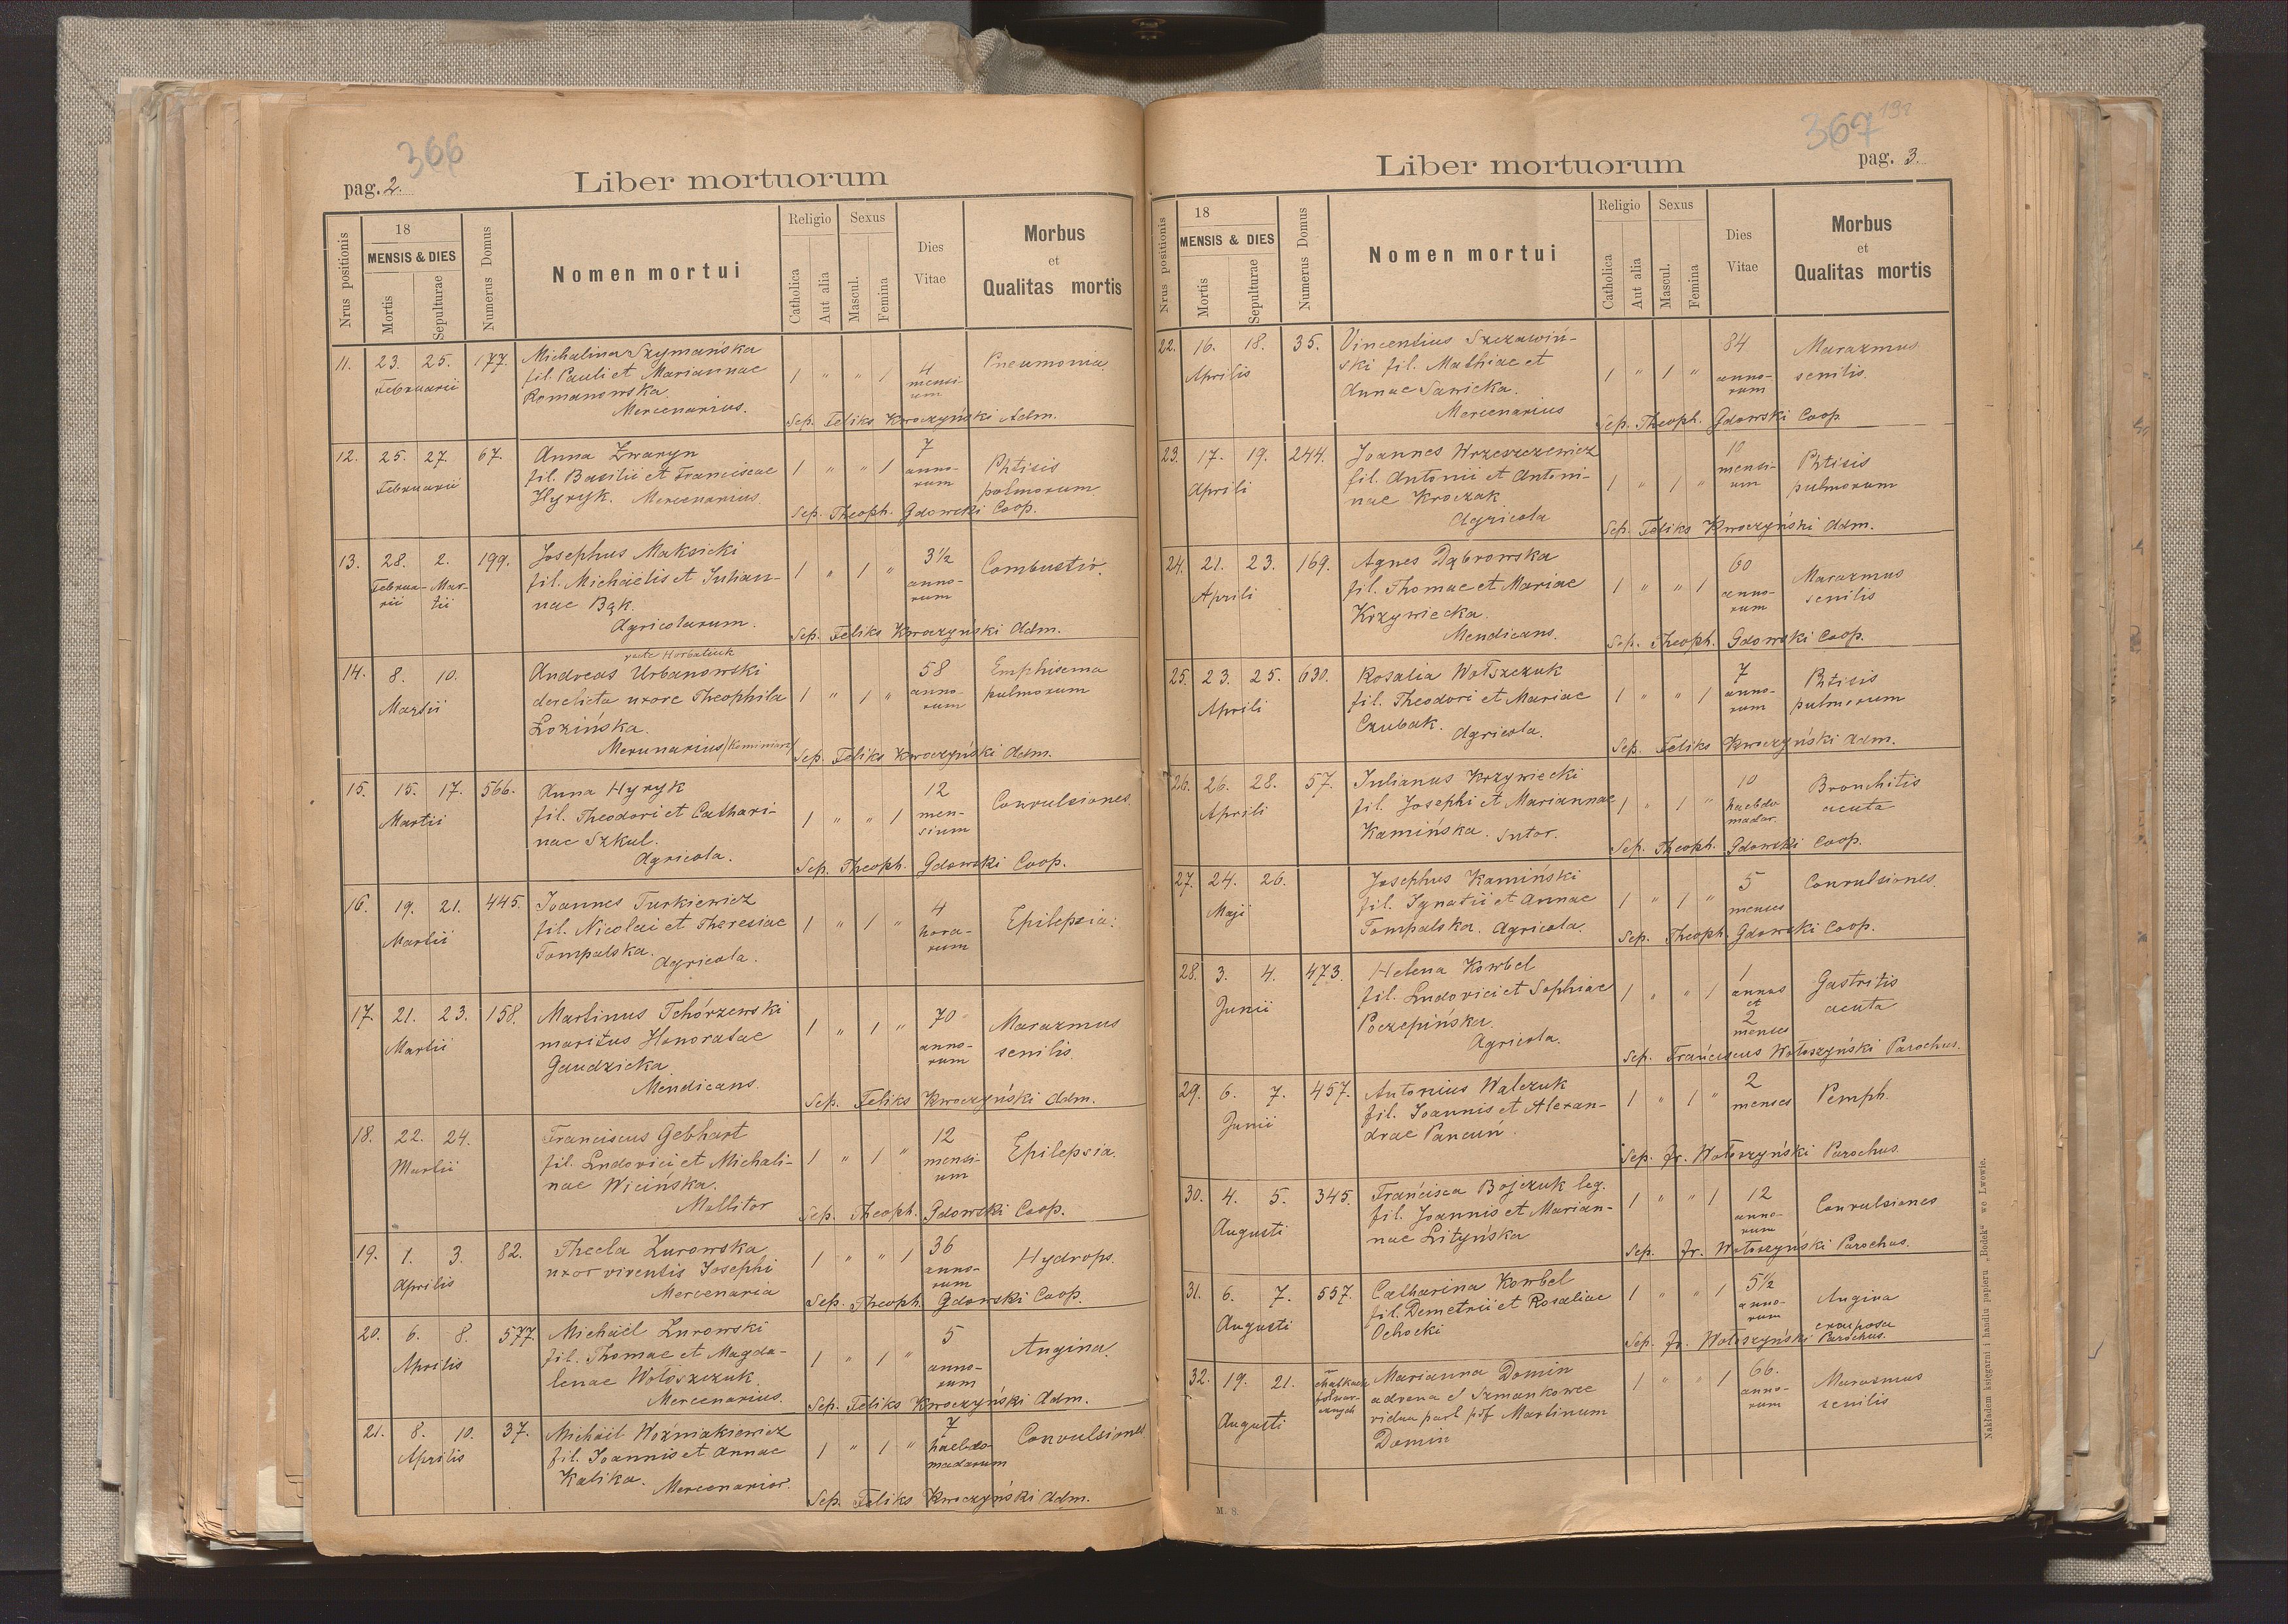 366
pag. 2.
Liber mortuorum
Nrus positionis
18
MENSIS & DIES
Mortis
Sepulturae
Numerus Domus
Nomen mortui
Religio
Catholica
Aut alia
Sexus
Mascul.
Femina
Dies
Vitae
Morbus
et
Qualitas mortis
11. 23. 25. 177. Michalina Szymańska 1 " " 1 4 Pneumonia
Februarii fil. Pauli et Mariannae mensi-
Romanowska um
Mercenarius. Sep. Feliks Kwoczyński Adm.
12. 25. 27. 67. Anna Zwaryn 1 " " 1 7 Phtisis
Februarii fil. Basilii et Franciscae anno- pulmorum
Hyryk. Mercenarius. rum
Sep. Theoph. Gdowski Coop.
13. 28. 2. 199. Josephus Maksicki 1 " 1 " 3½ Combustio.
Februa- Mar- fil. Michaëlis et Julian- anno-
rii tii nae Bąk. rum
Agricolarum. Sep. Feliks Kwoczyński Adm.
recte Horbatiuk
14. 8. 10. Andreas Urbanowski 1 " 1 " 58 Emphisema
Martii derelicta uxore Theophila anno- pulmorum
Łozińska. rum
Merunarius/Kominiarz/ Sep. Feliks Kwoczyński Adm.
15. 15. 17. 566. Anna Hyryk 1 " " 1 12 Convulsiones
Martii fil. Theodori et Cathari- men-
nae Szkul. sium
Agricola. Sep. Theoph. Gdowski Coop.
16. 19. 21. 445. Joannes Turkiewicz 1 " 1 " 4 Epilepsia.
Martii fil. Nicolai et Theresiae hora-
Tompalska. rum
Agricola.
17. 21. 23. 158. Martinus Tchórzewski 1 " 1 " 70 Marazmus
Martii maritus Honoratae anno- senilis.
Gaudzicka rum
Mendicans. Sep. Feliks Kwoczyński Adm.
18. 22. 24. Franciscus Gebhart 1 " 1 " 12 Epilepsia.
Martii fil. Ludovici et Michali- mensi-
nae Wicińska. um
Mollitor Sep. Theoph. Gdowski Coop.
19. 1. 3. 82. Thecla Żurowska 1 " " 1 36 Hydrops.
Aprilis uxor viventis Josephi anno-
Mercenaria rum
Sep. Theoph. Gdowski Coop.
20. 6. 8. 577. Michaël Żurowski 1 " 1 " 5 Angina.
Aprilis fil. Thomae et Magda- anno-
lenae Wołoszczuk rum
Mercenarius. Sep. Feliks Kwoczyński Adm.
21. 8. 10. 37. Michaël Woźniakiewicz 1 " 1 " 7 Convulsiones
Aprilis fil. Joannis et Annae haebdo
Kalika. Mercenarior. madarum
Sep. Feliks Kwoczyński Adm.
367
198
Liber mortuorum
pag. 3.
Nrus positionis
18
MENSIS & DIES
Mortis
Sepulturae
Numerus Domus
Nomen mortui
Religio
Catholica
Aut alia
Sexus
Mascul.
Femina
Dies
Vitae
Morbus
et
Qualitas mortis
22. 16. 18. 35. Vincentius Szczawiń- 1 " 1 " 84 Marazmus
Aprilis ski fil. Mathiae et anno- senilis.
Annae Sawicka. rum
Mercenarius Sep. Theoph. Gdowski Coop.
23. 17. 19. 244. Joannes Wrzeszczewicz 1 " 1 " 10 Phtisis
Aprili fil. Antonii et Antoni- mensi- pulmorum
nae Kroczak um
Agricola Sep. Feliks Kwoczyński Adm.
24. 21. 23. 169. Agnes Dąbrowska 1 " " 1 60 Marazmus
Aprili fil. Thomae et Mariae anno- senilis
Krzywiecka. rum
Mendicans. Sep. Theoph. Gdowski Coop.
25. 23. 25. 630. Rosalia Wołszczuk 1 " " 1 7 Phtisis
Aprili fil. Theodori et Mariae anno- pulmorum
Czubak. Agricola. rum
Sep. Feliks Kwoczyński Adm.
26. 26. 28. 57. Julianus Krzywiecki 1 " 1 " 10 Bronchitis
Aprili fil. Josephi et Mariannae haebdo acuta
Kamińska. Sutor. madar.
Sep. Theoph. Gdowski Coop.
27. 24. 26. Josephus Kamiński 1 " 1 " 5 Convulsiones.
Maji fil. Ignatii et Annae menses
Tompalska. Agricola. Sep. Theoph. Gdowski Coop.
28. 3. 4. 473. Helena Kowbel 1 " " 1 1 Gastritis
Junii fil. Ludovici et Sophiae annus acuta
Poczepińska. et 2
Agricola. menses
Sep. Franciscus Wołoszyński Parochus.
29. 6. 7. 457. Antonius Walczuk 1 " 1 " 2 Pemph.
Junii fil. Joannis et Alexan- menses
drae Pancuń.
Sep. Fr. Wołoszyński Parochus.
30. 4. 5. 345. Francisca Bojczuk leg. 1 " " 1 12 Convulsiones
Augusti fil. Joannis et Marian- anno-
nae Lityńska rum
Sep. Fr. Wołoszyński Parochus.
31. 6. 7. 557. Catharina Kowbel 1 " " 1 5½ Angina
Augusti fil. Demetrii et Rosaliae anno-
Ochocki rum crouposa
Sep. Fr. Wołoszyński Parochus.
32. 19. 21. Marianna Domin 1 " " 1 66. Marasmus
Augusti advena e Szmankowce anno- senilis
vidua Martinum rum
Domin
M. 8.
Nakładem księgarni i handlu papieru „Bodek“ we Lwowie.